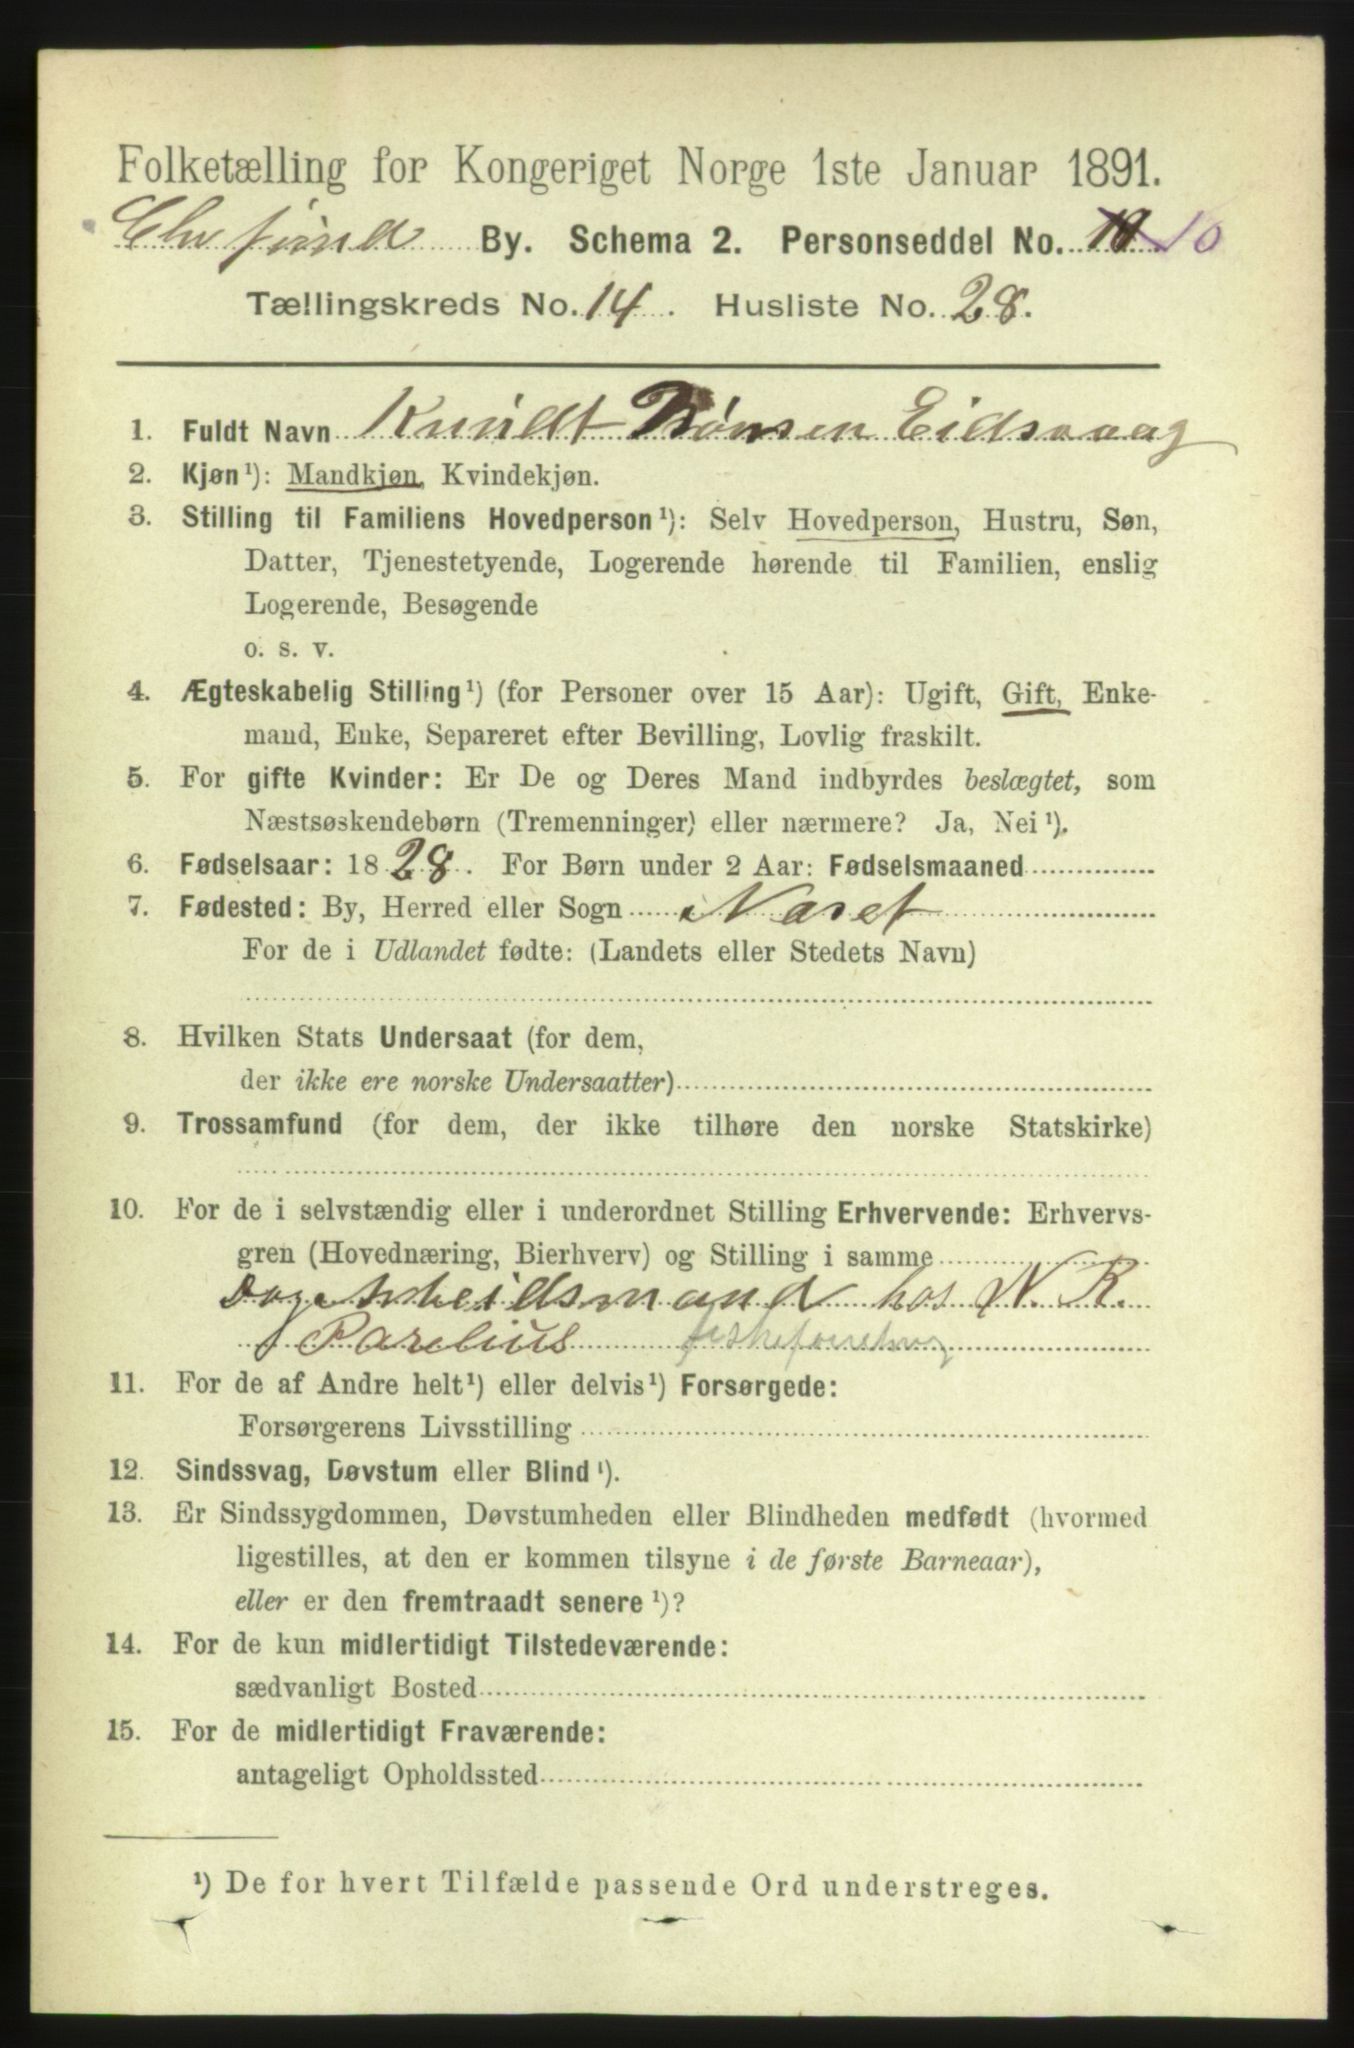 Folketælling for Kongeriget Norge 1ste Januar 1891.
Chrsund By. Schema 2. Personseddel No. 10
Tællingskreds No. 14. Husliste No. 28.
1. Fuldt Navn Knudt Eidsvaag
2. Kjøn¹): Mandkjøn, Kvindekjøn.
3. Stilling til Familiens Hovedperson¹): Selv Hovedperson, Hustru, Søn,
Datter, Tjenestetyende, Logerende hørende til Familien, enslig
Logerende, Besøgende
o. s. v.
4. Ægteskabelig Stilling¹) (for Personer over 15 Aar): Ugift, Gift, Enke-
mand, Enke, Separeret efter Bevilling, Lovlig fraskilt.
5. For gifte Kvinder: Er De og Deres Mand indbyrdes beslægtet, som
Næstsøskendebørn (Tremenninger) eller nærmere? Ja, Nei¹).
6. Fødselsaar: 1828. For Børn under 2 Aar: Fødselsmaaned
7. Fødested: By, Herred eller Sogn Næset
For de i Udlandet fødte: (Landets eller Stedets Navn)
8. Hvilken Stats Undersaat (for dem,
der ikke ere norske Undersaatter)
9. Trossamfund (for dem, der ikke tilhøre den norske Statskirke)
10. For de i selvstændig eller i underordnet Stilling Erhvervende: Erhvervs-
gren (Hovednæring, Bierhverv) og Stilling i samme
Dag Arbeidsmand hos N. R.
Parelius fiskeforretning
11. For de af Andre helt¹) eller delvis¹) Forsørgede:
Forsørgerens Livsstilling
12. Sindssvag, Døvstum eller Blind¹).
13. Er Sindssygdommen, Døvstumheden eller Blindheden medfødt (hvormed
ligestilles, at den er kommen tilsyne i de første Barneaar),
eller er den fremtraadt senere¹)?
14. For de kun midlertidigt Tilstedeværende:
sædvanligt Bosted
15. For de midlertidigt Fraværende:
antageligt Opholdssted
¹) De for hvert Tilfælde passende Ord understreges.